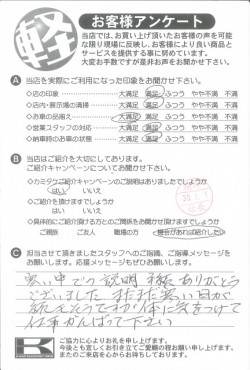 軽
お客様アンケート
当店では、お買い上げ頂いたお客様の声を可能
な限り現場に反映し、お客様により良い商品と
サービスを提供する事に努めています。
大変お手数ですが是非お声をお聞かせ下さい。
A 当店を実際にご利用になった印象をお聞かせ下さい。
◇店の印象 大満足 満足 ふつう やや不満 不満
◇店内・展示場の清掃 大満足 満足 ふつう やや不満 不満
◇お車の品揃え 大満足 満足 ふつう やや不満 不満
◇営業スタッフの対応 大満足 満足 ふつう やや不満 不満
◇納車時のお車の状態 大満足 満足 ふつう やや不満 不満
B 当店はご紹介を大切にしております。
ご紹介キャンペーンについてお聞かせ下さい。
◇カミタケご紹介キャンペーンのご説明はありましたでしょうか
はい いいえ
◇ご紹介を頂けますでしょうか
はい いいえ
◇具体的にご紹介頂ける方とのご関係をお聞かせ頂けますでしょうか
ご親戚 ご友人 職場の方 機会があれば紹介したい
C 担当させて頂きましたスタッフへのご指摘、ご指導メッセージを
お願いします。応援メッセージもぜひお願いします。
寒い中での説明 ありがとう
ございました まだまだ寒い日が
続きそうですが体に気をつけて
仕事がんばって下さい
ご協力に心よりお礼を申し上げます。
今後とも宜しくお引き立てご愛顧の程お願い申し上げます。
またのご来店を心からお待ちしております。